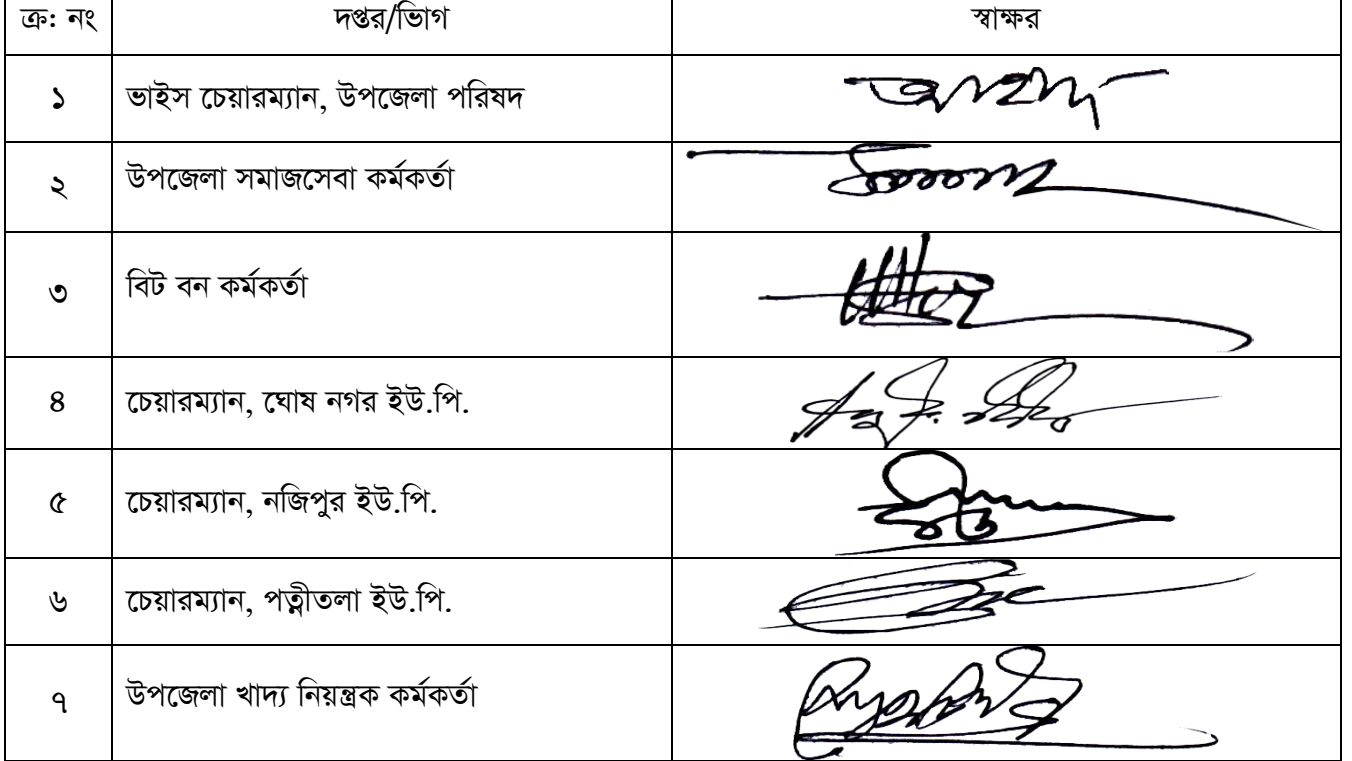 ক্র: নং দপ্তর/ভিাগ স্বাক্ষর
১ ভাইস চেয়ারম্যান, উপজেলা পরিষদ
২ উপজেলা সমাজসেবা কর্মকর্তা
৩ বিট বন কর্মকর্তা
৪ চেয়ারম্যান, ঘোষ নগর ইউ.পি.
৫ চেয়ারম্যান, নজিপুর ইউ.পি.
৬ চেয়ারম্যান, পত্নীতলা ইউ.পি.
৭ উপজেলা খাদ্য নিয়ন্ত্রক কর্মকর্তা